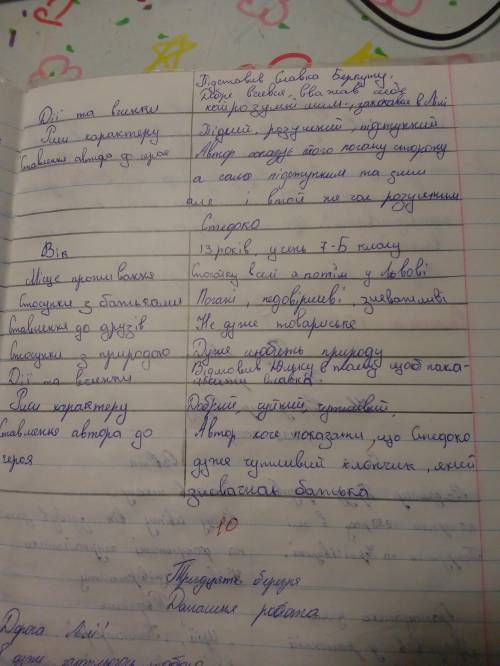 Підставив Славка Беркуту.
Добре вчився, вважав себе
Дії та вчинки найрозумнішим, закоханий в Лілі
Риси характеру Підлий, розумний, підступний
Ставлення автора до героя Автор показує його погану сторону
а саме підступним та злим
але і в той же час розумним
Стефко
Вік 13 років, учень 7-Б класу
Місце проживання Спочатку в селі а потім у Львові
Стосунки з батьками Погані, недовірливі, зневажливі
Ставлення до друзів Не дуже товариське
Стосунки з природою Дуже любить природу
Дії та вчинки Відмовив Юльку в плануванні щоб пока-
рати Славка.
Риси характеру Добрий, чуйний, чутливий.
Ставлення автора до Автор хоче показати, що Стефко
героя дуже чутливий хлопчик, який
зневажав батька
10
Тридцяте березня
Домашня робота
Дорога Лілі!
дуже